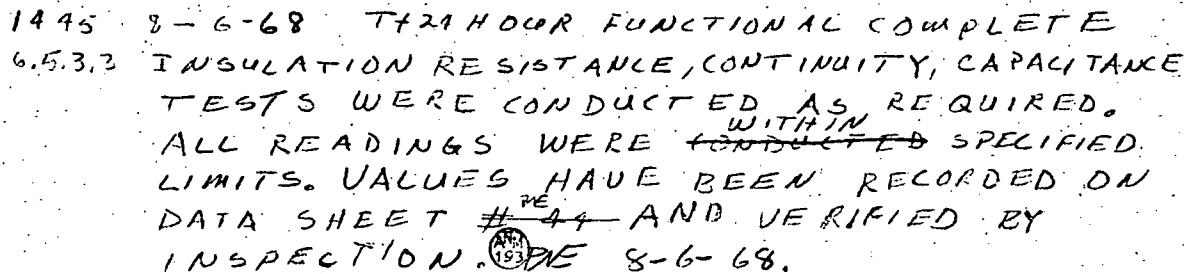 1445 8-6-68 T+24 HOUR FUNCTIONAL COMPLETE
6.5.3.3 INSULATION RESISTANCE, CONTINUITY, CAPACITANCE
TESTS WERE CONDUCTED AS REQUIRED.
WITHIN
ALL READINGS WERE CONDUCTED SPECIFIED
LIMITS. VALUES HAVE BEEN RECORDED ON
DATA SHEET # 44 AND VERIFIED BY
INSPECTION. 193 8-6-68.